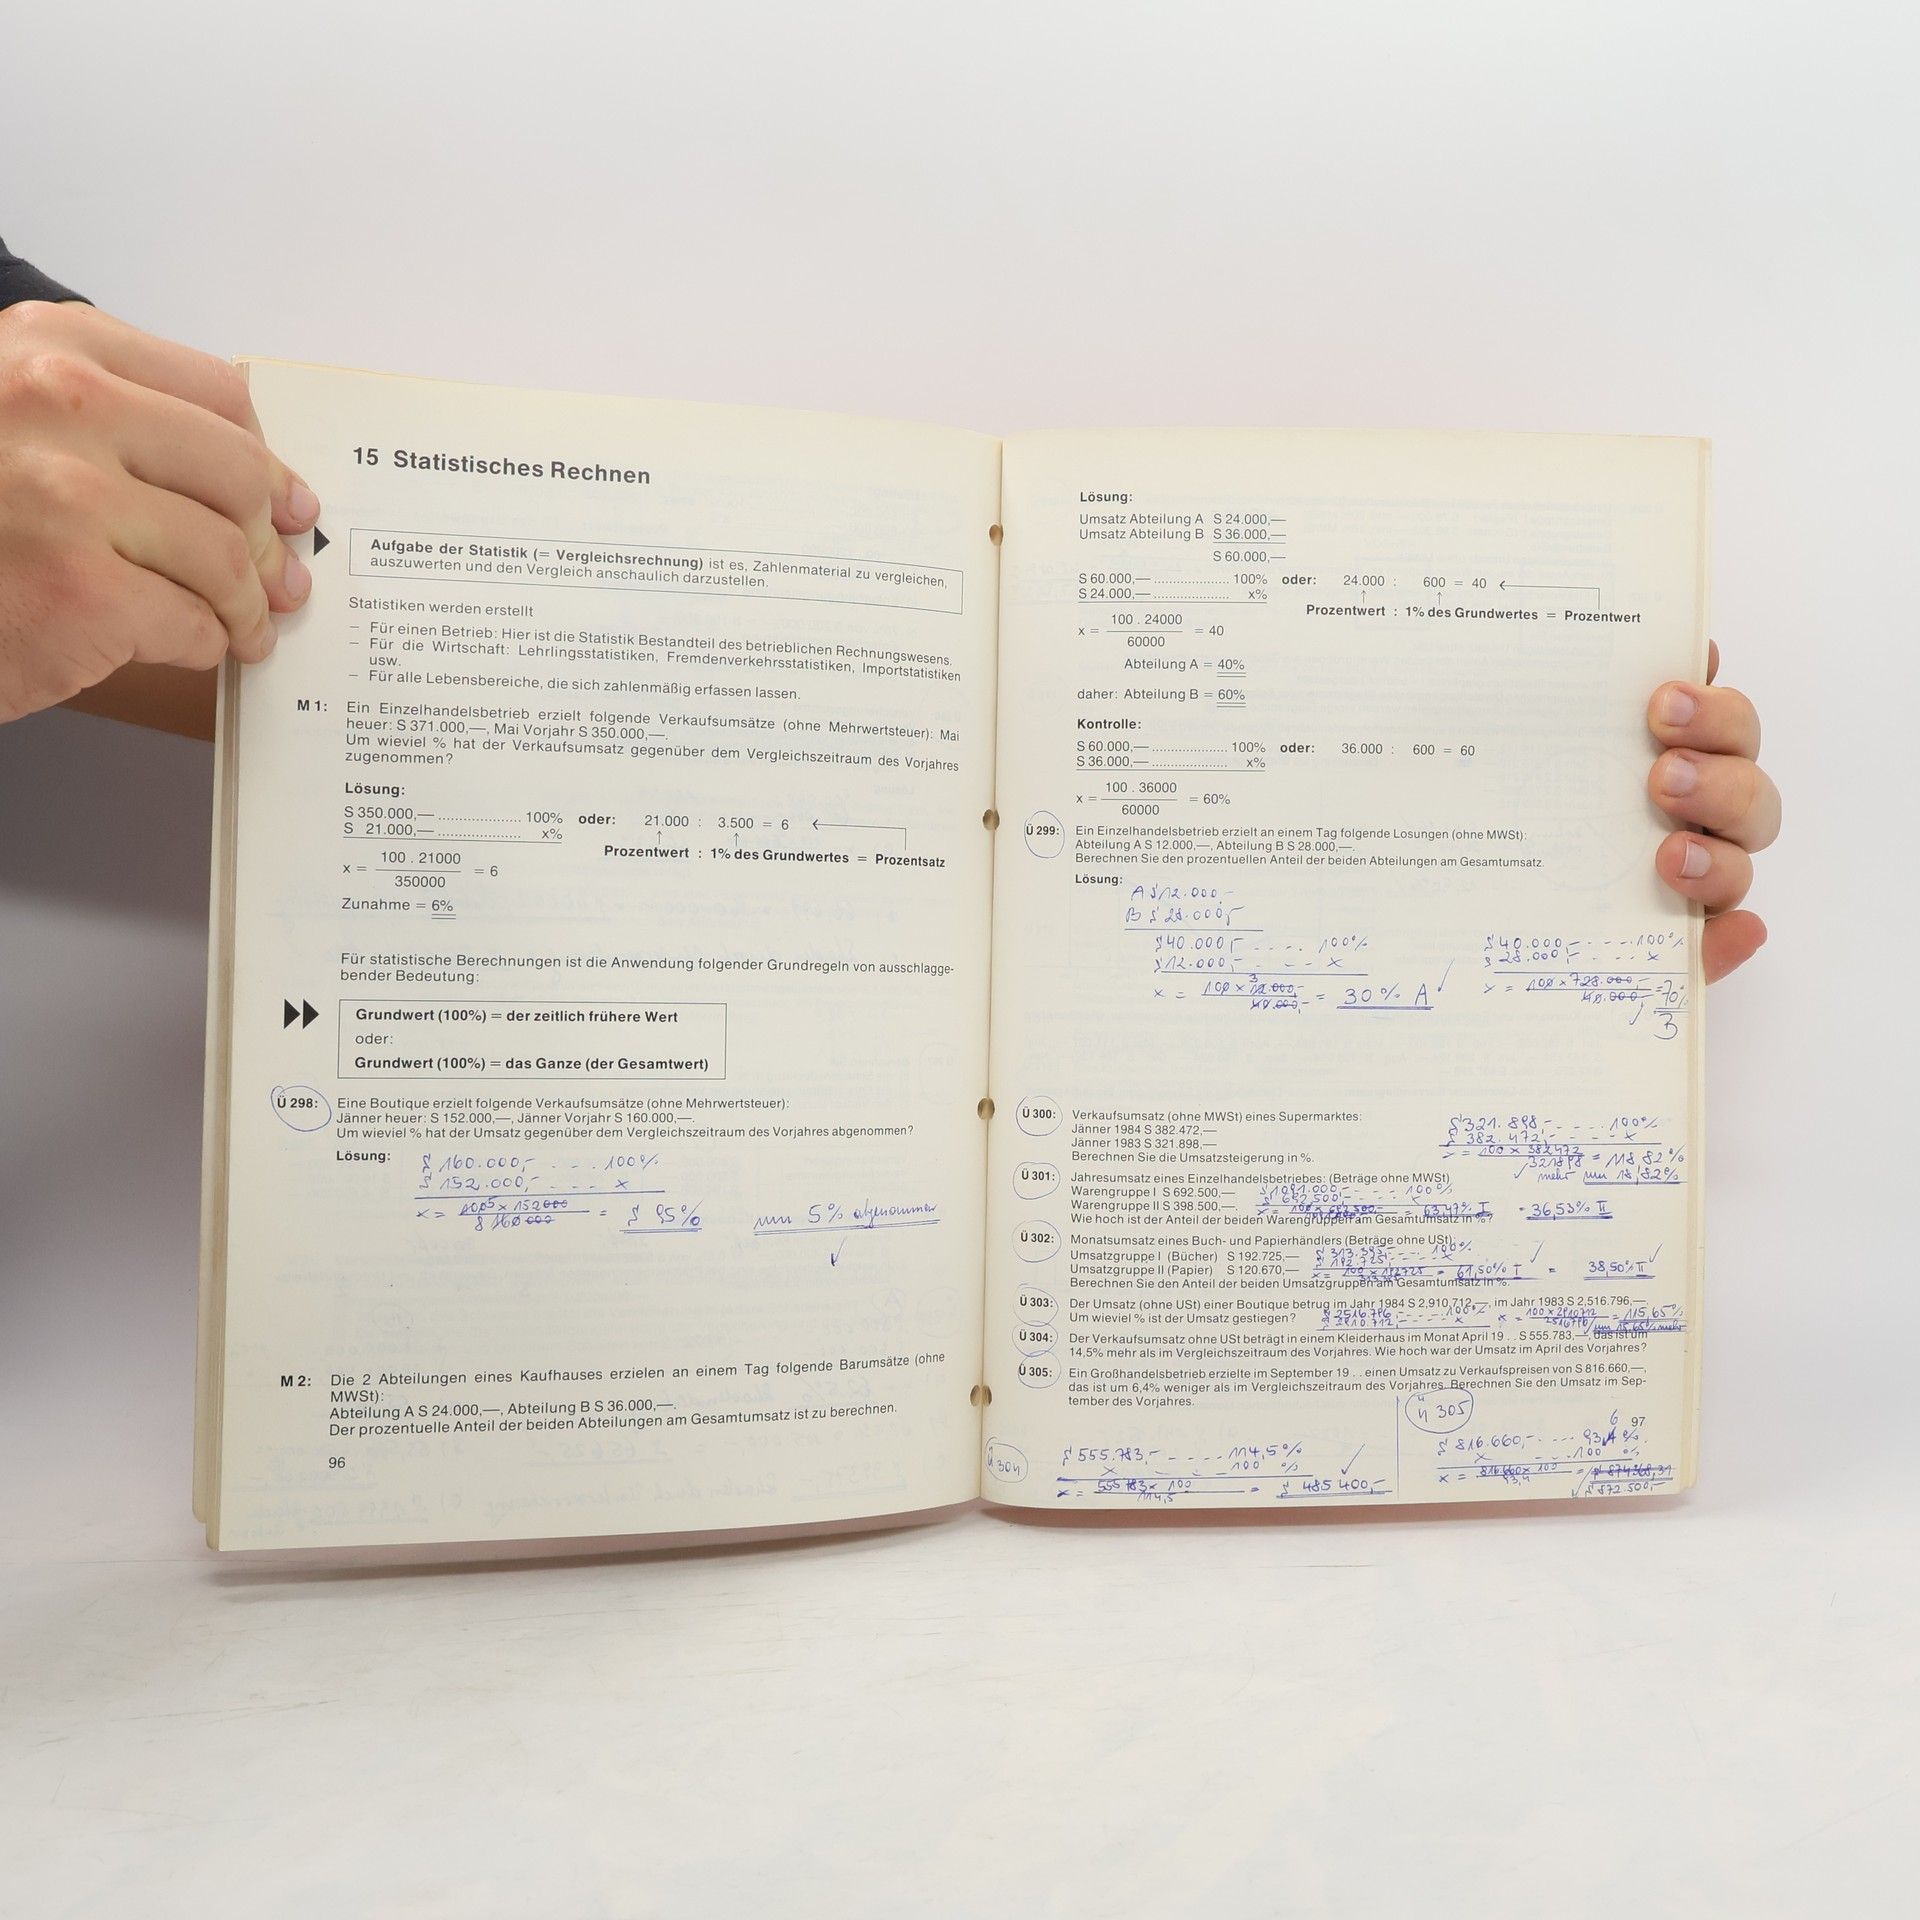 15 Statistisches Rechnen
Aufgabe der Statistik (= Vergleichsrechnung) ist es, Zahlenmaterial zu vergleichen,
auszuwerten und den Vergleich anschaulich darzustellen.
Statistiken werden erstellt
– Für einen Betrieb: Hier ist die Statistik Bestandteil des betrieblichen Rechnungswesens.
– Für die Wirtschaft: Lehrlingsstatistiken, Fremdenverkehrsstatistiken, Importstatistiken
usw.
– Für alle Lebensbereiche, die sich zahlenmäßig erfassen lassen.
M 1: Ein Einzelhandelsbetrieb erzielt folgende Verkaufsumsätze (ohne Mehrwertsteuer): Mai
heuer: S 371.000,—, Mai Vorjahr S 350.000,—.
Um wieviel % hat der Verkaufsumsatz gegenüber dem Vergleichszeitraum des Vorjahres
zugenommen?
Lösung:
S 350.000,— .................... 100% oder: 21.000 : 3.500 = 6
S 21.000,— .................... x%
Prozentwert : 1% des Grundwertes = Prozentsatz
100 . 21000
x = = 6
350000
Zunahme = 6%
Für statistische Berechnungen ist die Anwendung folgender Grundregeln von ausschlagge-
bender Bedeutung:
Grundwert (100%) = der zeitlich frühere Wert
oder:
Grundwert (100%) = das Ganze (der Gesamtwert)
Ü 298: Eine Boutique erzielt folgende Verkaufsumsätze (ohne Mehrwertsteuer):
Jänner heuer: S 152.000,—, Jänner Vorjahr S 160.000,—.
Um wieviel % hat der Umsatz gegenüber dem Vergleichszeitraum des Vorjahres abgenommen?
Lösung:
S 160.000,- - - - 100%
S 152.000,- - - - x
x = = 95% um 5% abgenommen
M 2: Die 2 Abteilungen eines Kaufhauses erzielen an einem Tag folgende Barumsätze (ohne
MWSt):
Abteilung A S 24.000,—, Abteilung B S 36.000,—.
Der prozentuelle Anteil der beiden Abteilungen am Gesamtumsatz ist zu berechnen.
96
Lösung:
Umsatz Abteilung A S 24.000,—
Umsatz Abteilung B S 36.000,—
S 60.000,—
S 60.000,— ................... 100% oder: 24.000 : 600 = 40
S 24.000,— ................... x%
Prozentwert : 1% des Grundwertes = Prozentwert
100 . 24000
x = = 40
60000
Abteilung A = 40%
daher: Abteilung B = 60%
Kontrolle:
S 60.000,— ................... 100% oder: 36.000 : 600 = 60
S 36.000,— ................... x%
100 . 36000
x = = 60%
60000
Ü 299: Ein Einzelhandelsbetrieb erzielt an einem Tag folgende Losungen (ohne MWSt):
Abteilung A S 12.000,—, Abteilung B S 28.000,—.
Berechnen Sie den prozentuellen Anteil der beiden Abteilungen am Gesamtumsatz.
Lösung:
A S 12.000,-
B S 28.000,-
S 40.000,- - - - - 100% S 40.000,- - - - - 100%
S 12.000,- - - - x S 28.000,- - - - x
x = = 30% A x = = 70%
B
Ü 300: Verkaufsumsatz (ohne MWSt) eines Supermarktes:
Jänner 1984 S 382.472,—
Jänner 1983 S 321.898,—
Berechnen Sie die Umsatzsteigerung in %.
S 321.898,- - - - - 100%
S 382.472,- - - - - x
x = 100 x 382472 = 118,82%
321898 mehr um 18,82%
Ü 301: Jahresumsatz eines Einzelhandelsbetriebes: (Beträge ohne MWSt)
Warengruppe I S 692.500,— S 1091.000,- - - - 100%
Warengruppe II S 398.500,—. S 692.500,- - - - x
x = = 63,47% I = 36,53% II
Wie hoch ist der Anteil der beiden Warengruppen am Gesamtumsatz in %?
Ü 302: Monatsumsatz eines Buch- und Papierhändlers (Beträge ohne USt):
Umsatzgruppe I (Bücher) S 192.725,— S 313.395,- - - - 100%
Umsatzgruppe II (Papier) S 120.670,— S 192.725,- - - - x
x = 100 x 192725 = 61,50% I = 38,50% II
Berechnen Sie den Anteil der beiden Umsatzgruppen am Gesamtumsatz in %.
Ü 303: Der Umsatz (ohne USt) einer Boutique betrug im Jahr 1984 S 2,910.712,—, im Jahr 1983 S 2,516.796,—.
Um wieviel % ist der Umsatz gestiegen? S 2516.796,- - - - 100% x = 100 x 2910712 = 115,65%
S 2910.712,- - - - x 2516796 um 15,65% mehr
Ü 304: Der Verkaufsumsatz ohne USt beträgt in einem Kleiderhaus im Monat April 19 . . S 555.783,—, das ist um
14,5% mehr als im Vergleichszeitraum des Vorjahres. Wie hoch war der Umsatz im April des Vorjahres?
Ü 305: Ein Großhandelsbetrieb erzielte im September 19 . . einen Umsatz zu Verkaufspreisen von S 816.660,—,
das ist um 6,4% weniger als im Vergleichszeitraum des Vorjahres. Berechnen Sie den Umsatz im Sep-
tember des Vorjahres.
Ü 304
S 555.783,- - - - - 114,5%
x - - - 100 %
x = 555783 x 100 = S 485400,-
114,5
Ü 305
97
S 816.660,- - - - - 93,6 %
x - - - 100 %
x = 816.660 x 100 =
S 872.500,-